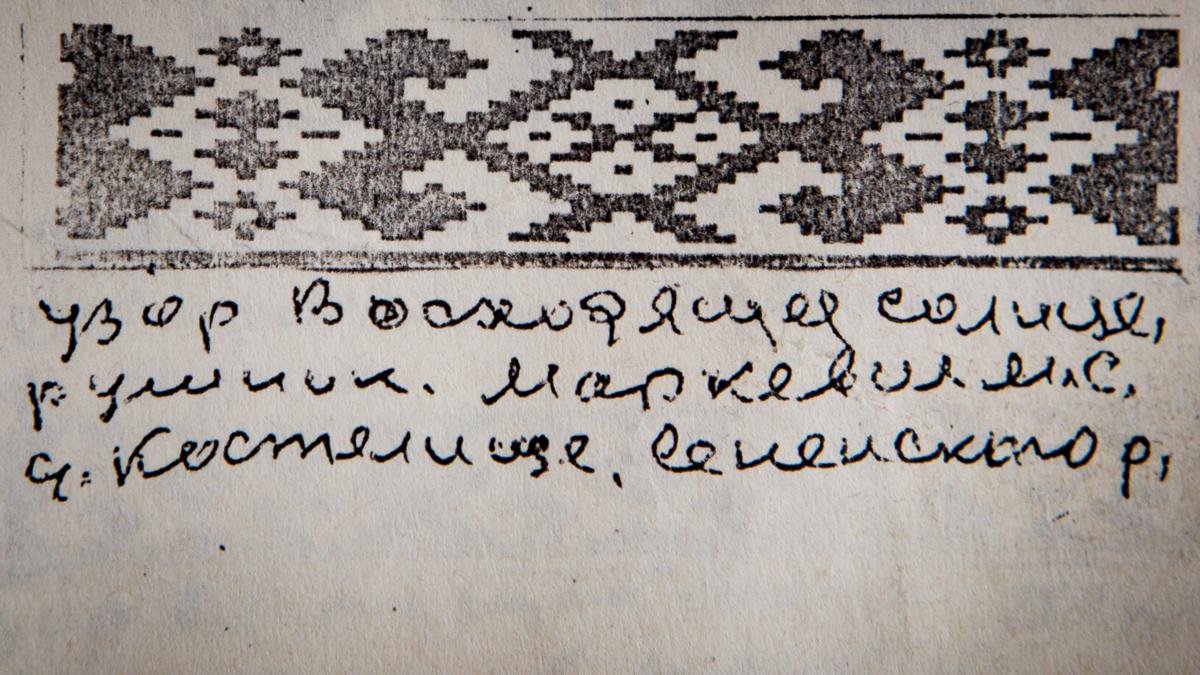 узор Восходящее солнце,
рушник. Маркевич М.С.
д. Костелище, Сененского р,